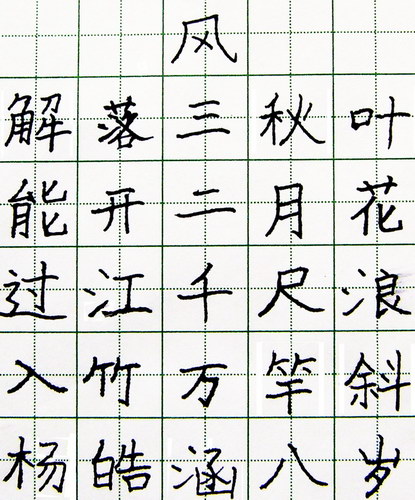 风
解落三秋叶
能开二月花
过江千尺浪
入竹万竿斜
杨皓涵八岁